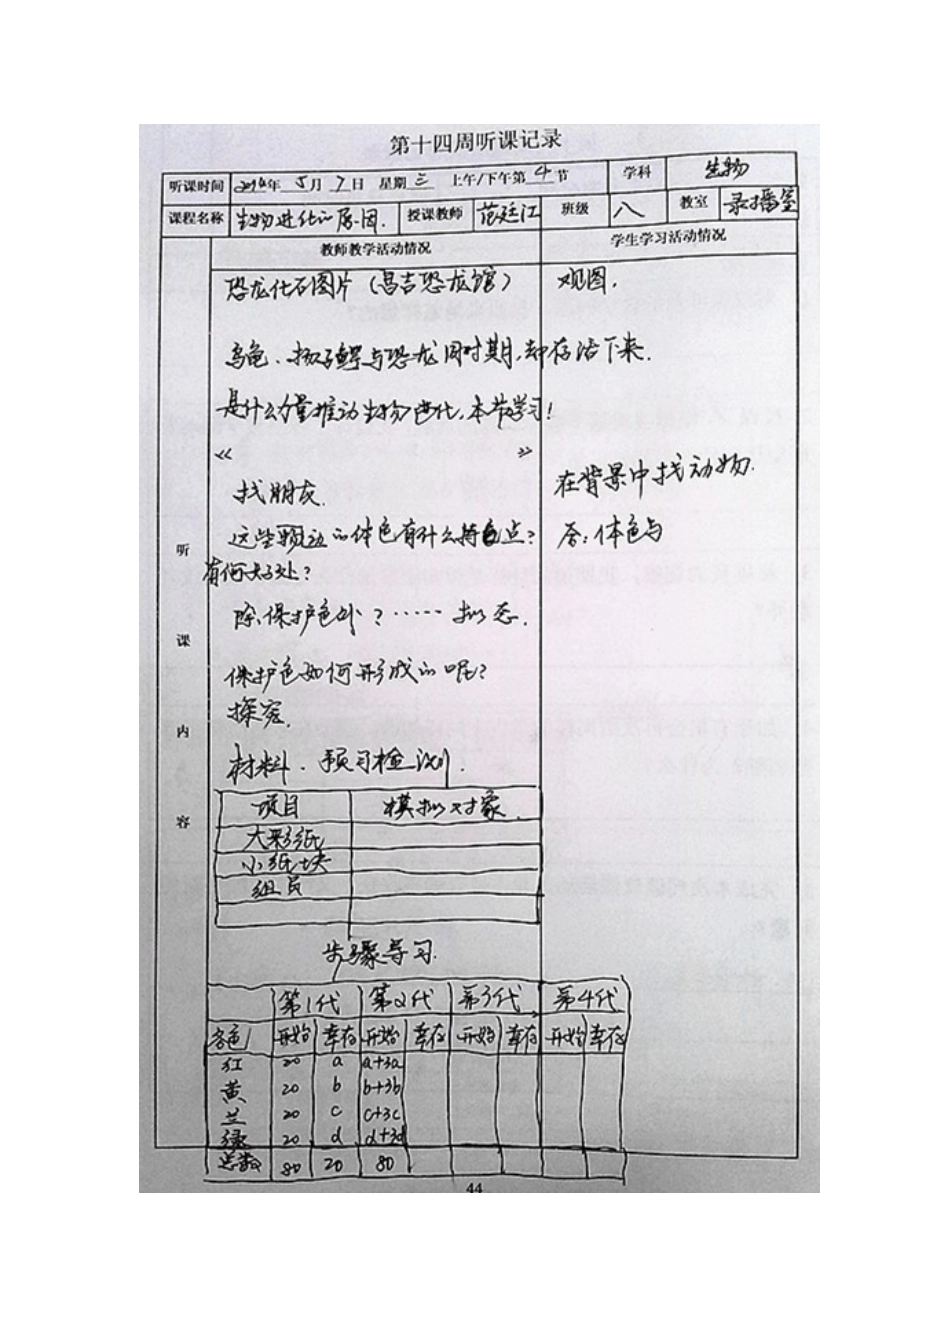 第十四周听课记录
听课时间 2014年 5月 7日 星期 三 上午/下午第 4 节 学科 生物
课程名称 生物进化的原因. 授课教师 范廷江 班级 八 教室 录播室
教师教学活动情况 学生学习活动情况
恐龙化石图片（昌吉恐龙馆） 观图.
乌龟、扬子鳄与恐龙同时期,却存活下来.
是什么力量推动生物进化,本节学习!
《 》
找朋友. 在背景中找动物.
这些 的体色有什么特点? 答:体色与
有何好处?
除保护色外?……拟态.
保护色如何形成的呢?
探究.
材料. 预习检测.
项目 模拟对象.
大彩纸
小纸块
组员
步骤导习.
第1代 第2代 第3代 第4代
各色 开始 幸存 开始 幸存 开始 幸存 开始 幸存
红 20 a a+3a
黄 20 b b+3b
兰 20 c c+3c
绿 20 d d+3d
总数 80 20 80
听课内容
44